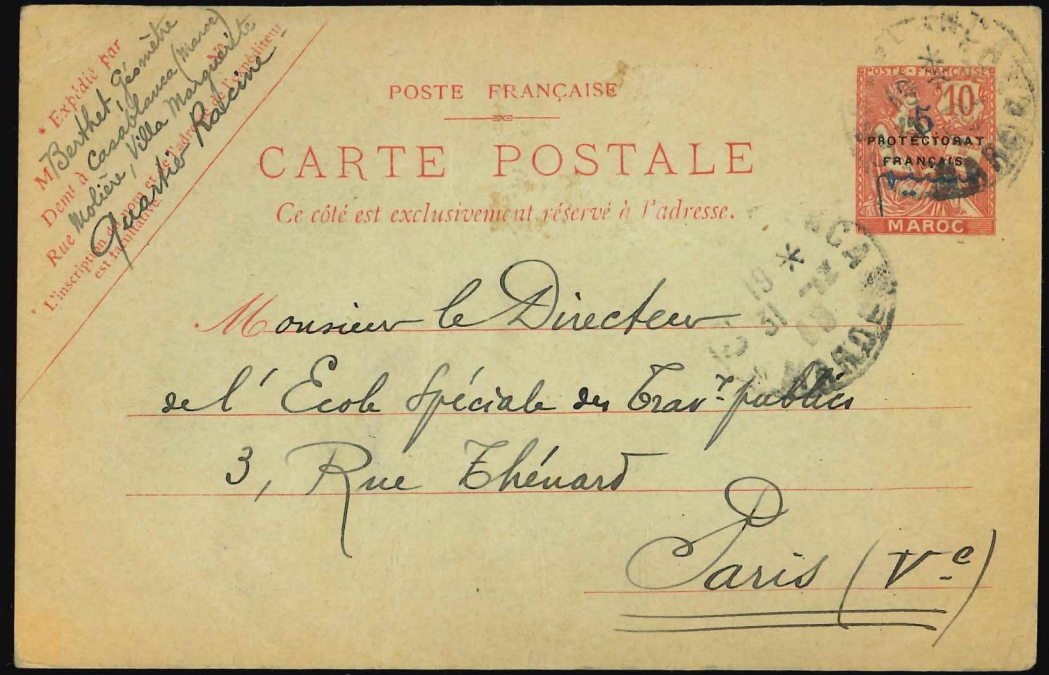 * Expédié par
M Berthet, Géomètre
Demt à Casablanca (Maroc)
Rue Molière, Villa Marguerite Nº
Quartier Racine
* L'inscription du nom et de l'adresse de l'expéditeur
est facultative.
POSTE FRANÇAISE
CARTE POSTALE
Ce côté est exclusivement réservé à l'adresse.
POSTE FRANÇAISE
10
PROTECTORAT
FRANÇAIS
MAROC
19 *
31
MAROC
Monsieur le Directeur
de l'Ecole Spéciale des Travx publics
3, Rue Thénard
Paris (Ve)